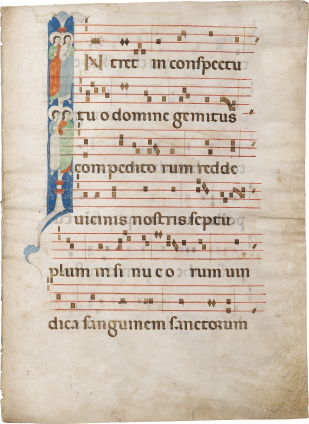 INtret in conspectu
tu o domine gemitus
compedito rum redde
vicinis nostris septu
plum in si nu e o rum vin
dica sanguinem sanctorum